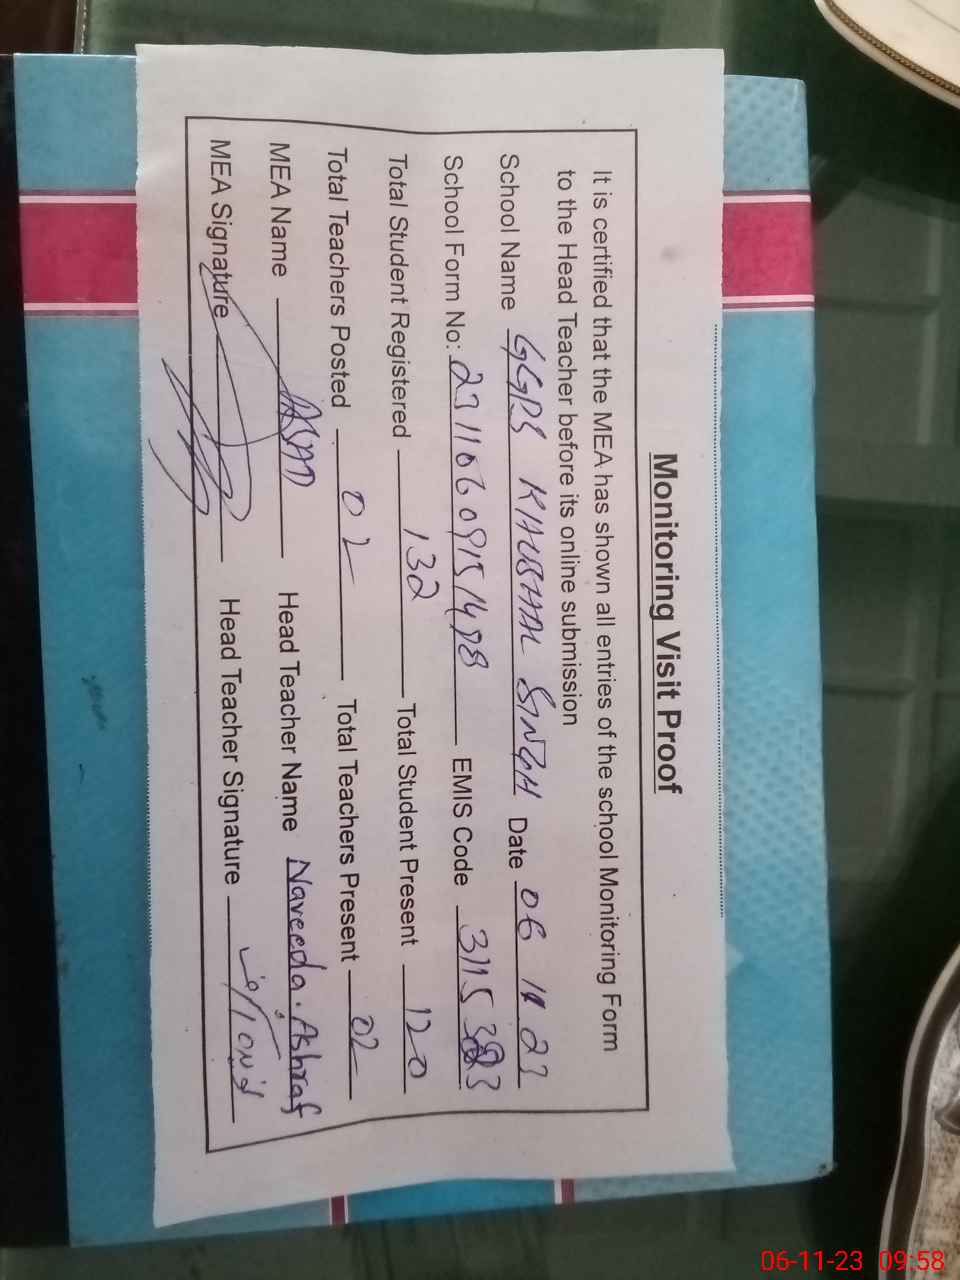 Monitoring Visit Proof
It is certified that the MEA has shown all entries of the school Monitoring Form
to the Head Teacher before its online submission
School Name GGPS KHUSHAL SINGH Date 06 11 23
School Form No: EMIS Code
Total Student Registered 132 Total Student Present 120
Total Teachers Posted 02 Total Teachers Present 02
MEA Name ASAD Head Teacher Name Naveeda. Ashraf
MEA Signature Head Teacher Signature
06-11-23 09:58